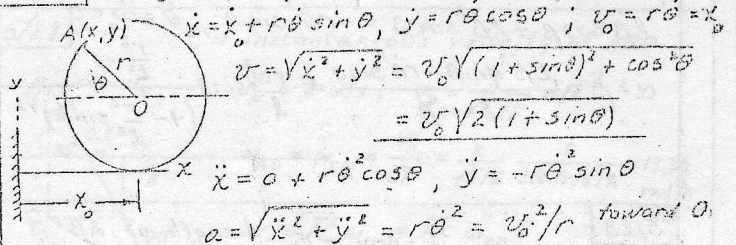 A(x,y)
r
θ
O
y
x
x₀
ẋ = ẋ₀ + rθ̇ sinθ, ẏ = rθ̇ cosθ ; v₀ = rθ̇ = ẋ₀
v = √(ẋ² + ẏ²) = v₀√((1 + sinθ)² + cos²θ)
= v₀√(2(1 + sinθ))
ẍ = 0 + rθ̇² cosθ, ÿ = -rθ̇² sinθ
a = √(ẍ² + ÿ²) = rθ̇² = v₀²/r toward O.